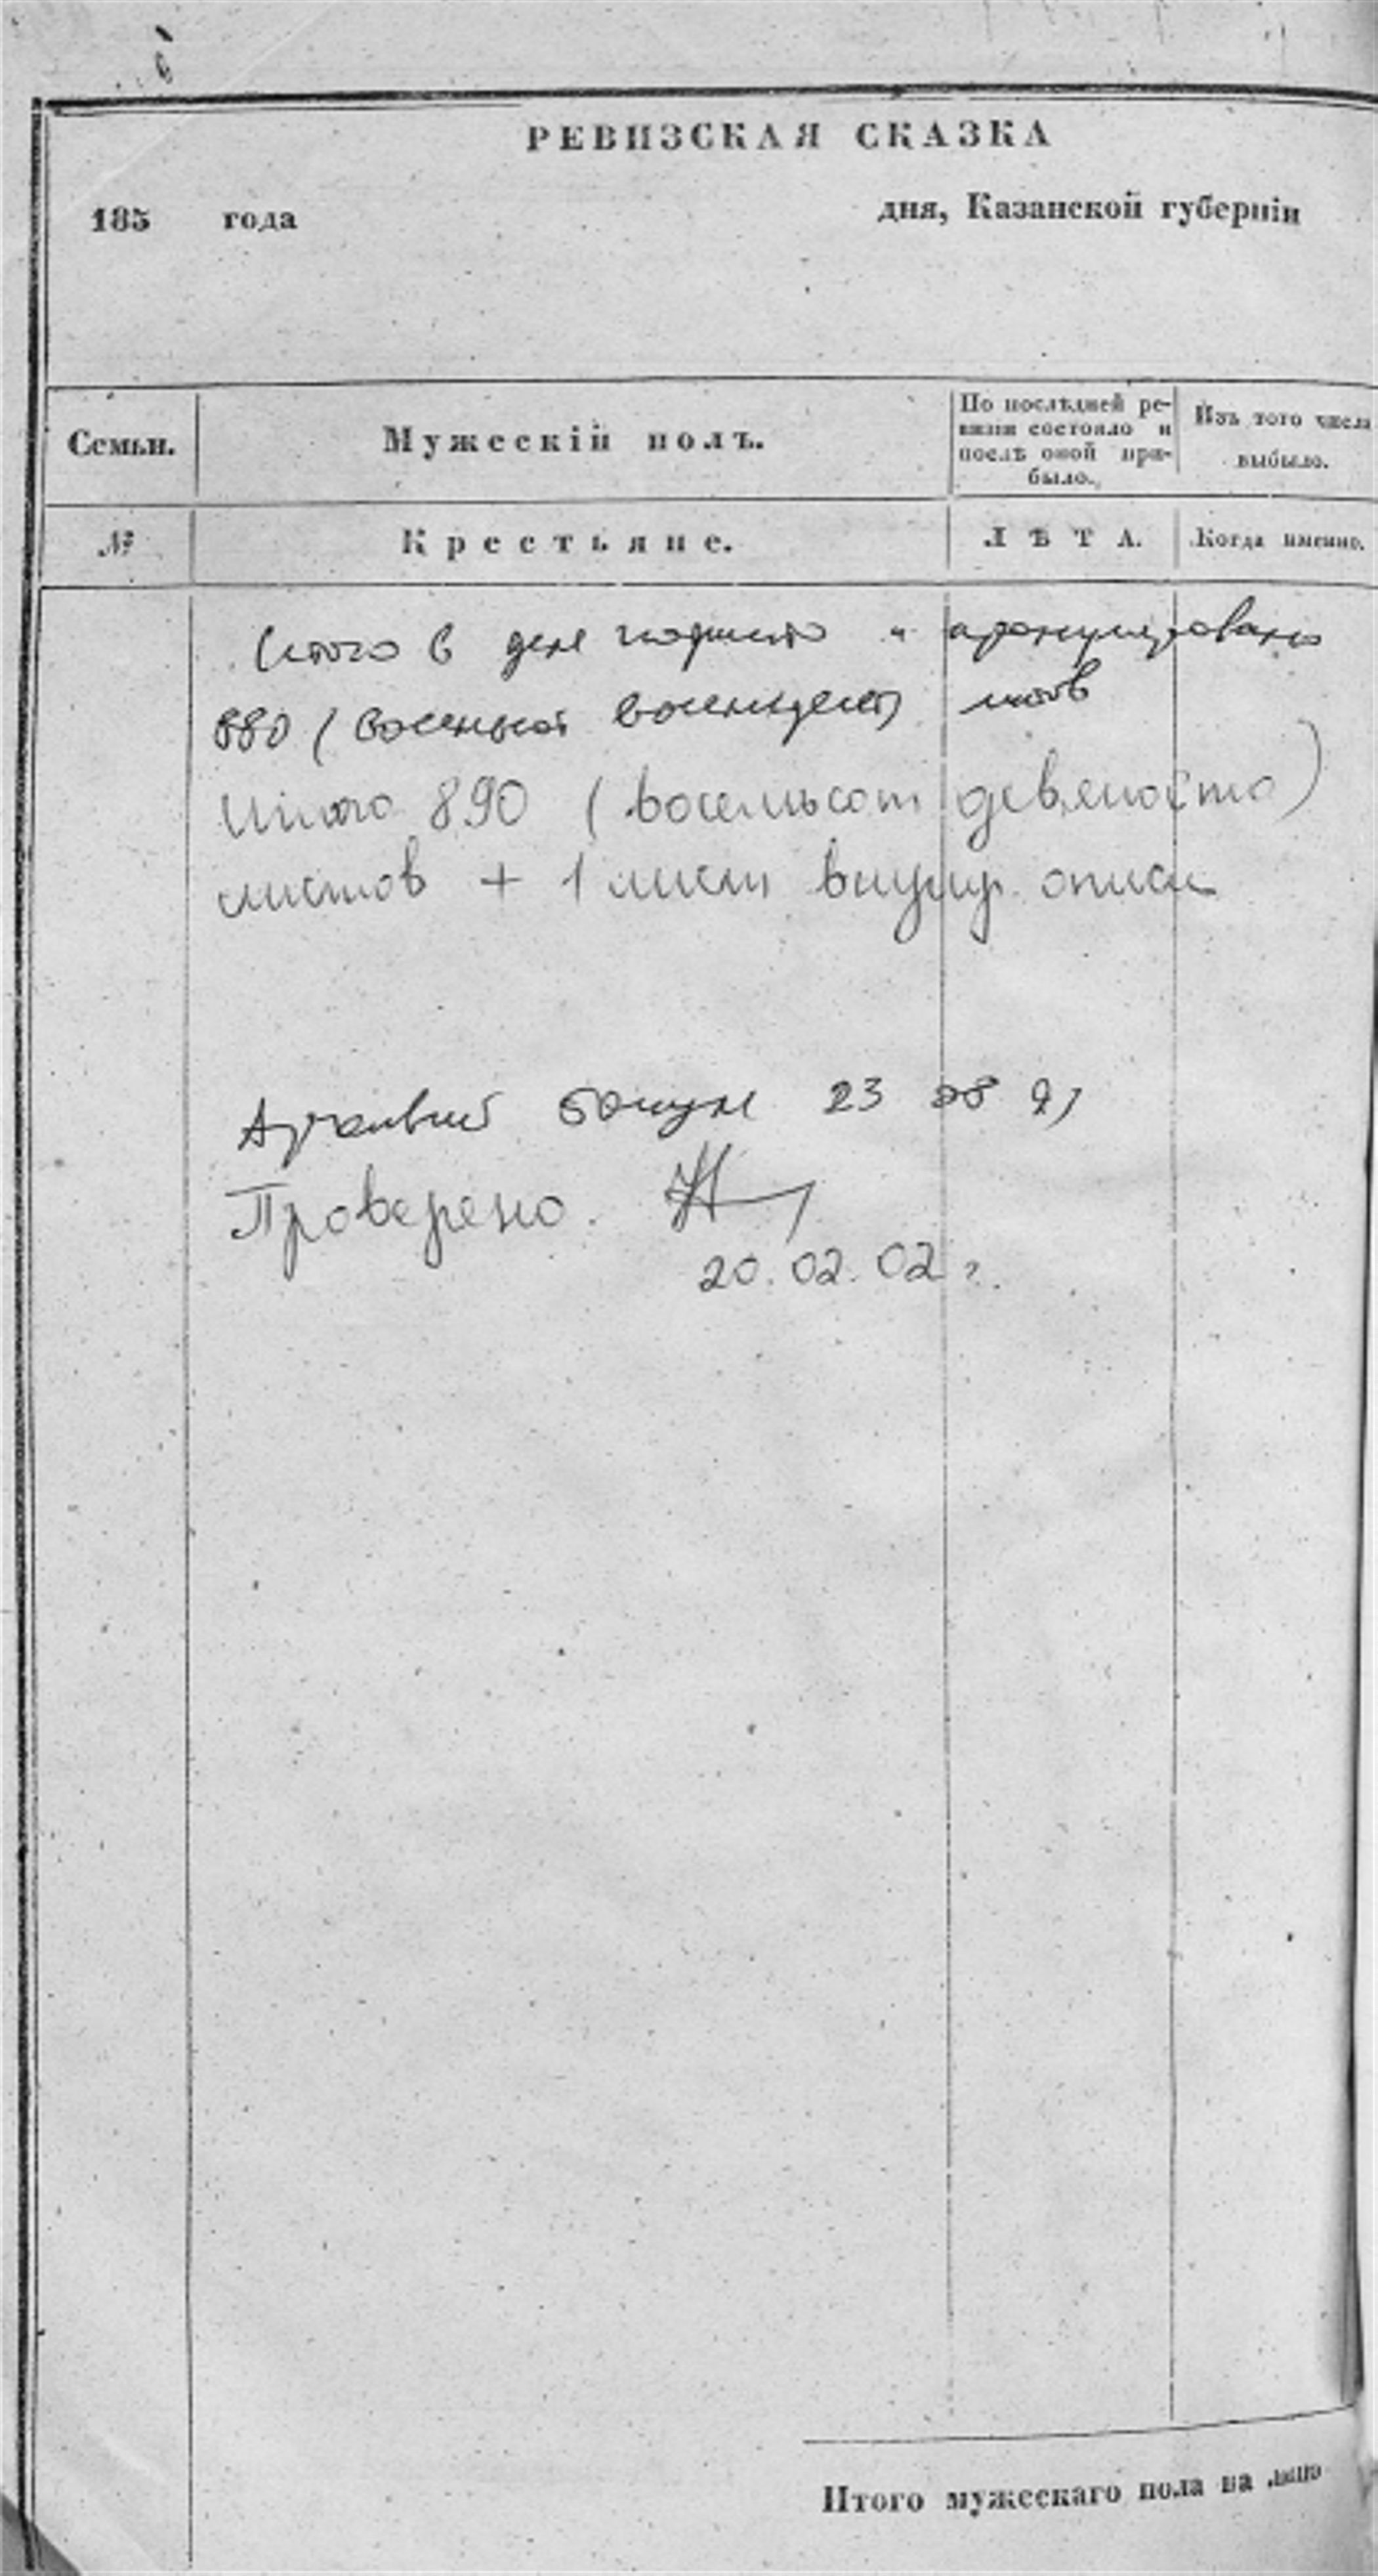 РЕВИЗСКАЯ СКАЗКА
185 года дня, Казанской губерніи
Семьи.
Мужескій полъ.
По послѣдней ре-
визіи состояло и
послѣ оной при-
было.
Изъ того числа
выбыло.
№
Крестьяне.
ЛѢТА.
Когда именно.
Итого в деле подшито и пронумеровано
880 (восемьсот восемьдесят) листов
Итого 890 (восемьсот девяносто)
листов + 1 лист внутр. описи
23 08 91
Проверено.
20.02.02 г.
Итого мужескаго пола на лицо